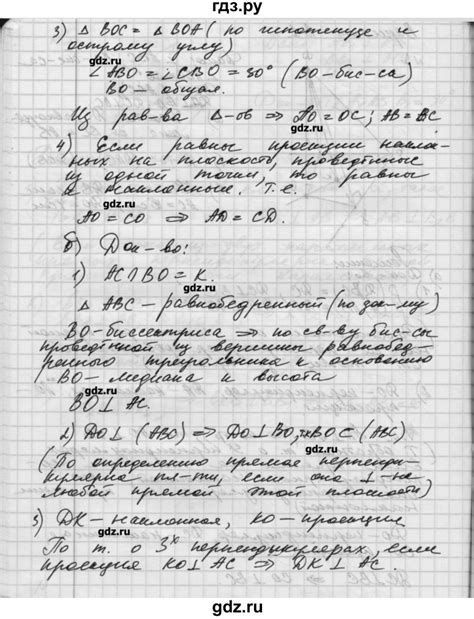 гдз.ру
3) Δ BOC = Δ BOA (по гипотенузе и
острому углу)
∠ABO = ∠CBO = 30° (BO-бис-са)
BO - общая.
Из рав-ва Δ-ов ⇒ AO = OC; AB = BC
4) Если равны проекции наклон-
ных на плоскость, проведённые
из одной точки, то равны
и наклонные. Т.е.
AO = CO ⇒ AD = CD.
б) Док-во:
1) AC∩BO = K.
Δ ABC - равнобедренный (по док-му)
BO-биссектриса ⇒ по св-ву бис-сы
проведённой из вершины равнобед-
ренного треугольника к основанию
BO - медиана и высота
BO⊥ AC.
2) DO⊥ (ABC) ⇒ DO⊥BO, т.к. BO⊂(ABC)
(По определению прямая перпенди-
кулярна пл-ти, если она ⊥-на
любой прямой этой плоскости)
3) DK - наклонная, KO - проекция
По т. о 3х перпендикулярах, если
проекция KO⊥AC ⇒ DK⊥AC.
gdz.ru